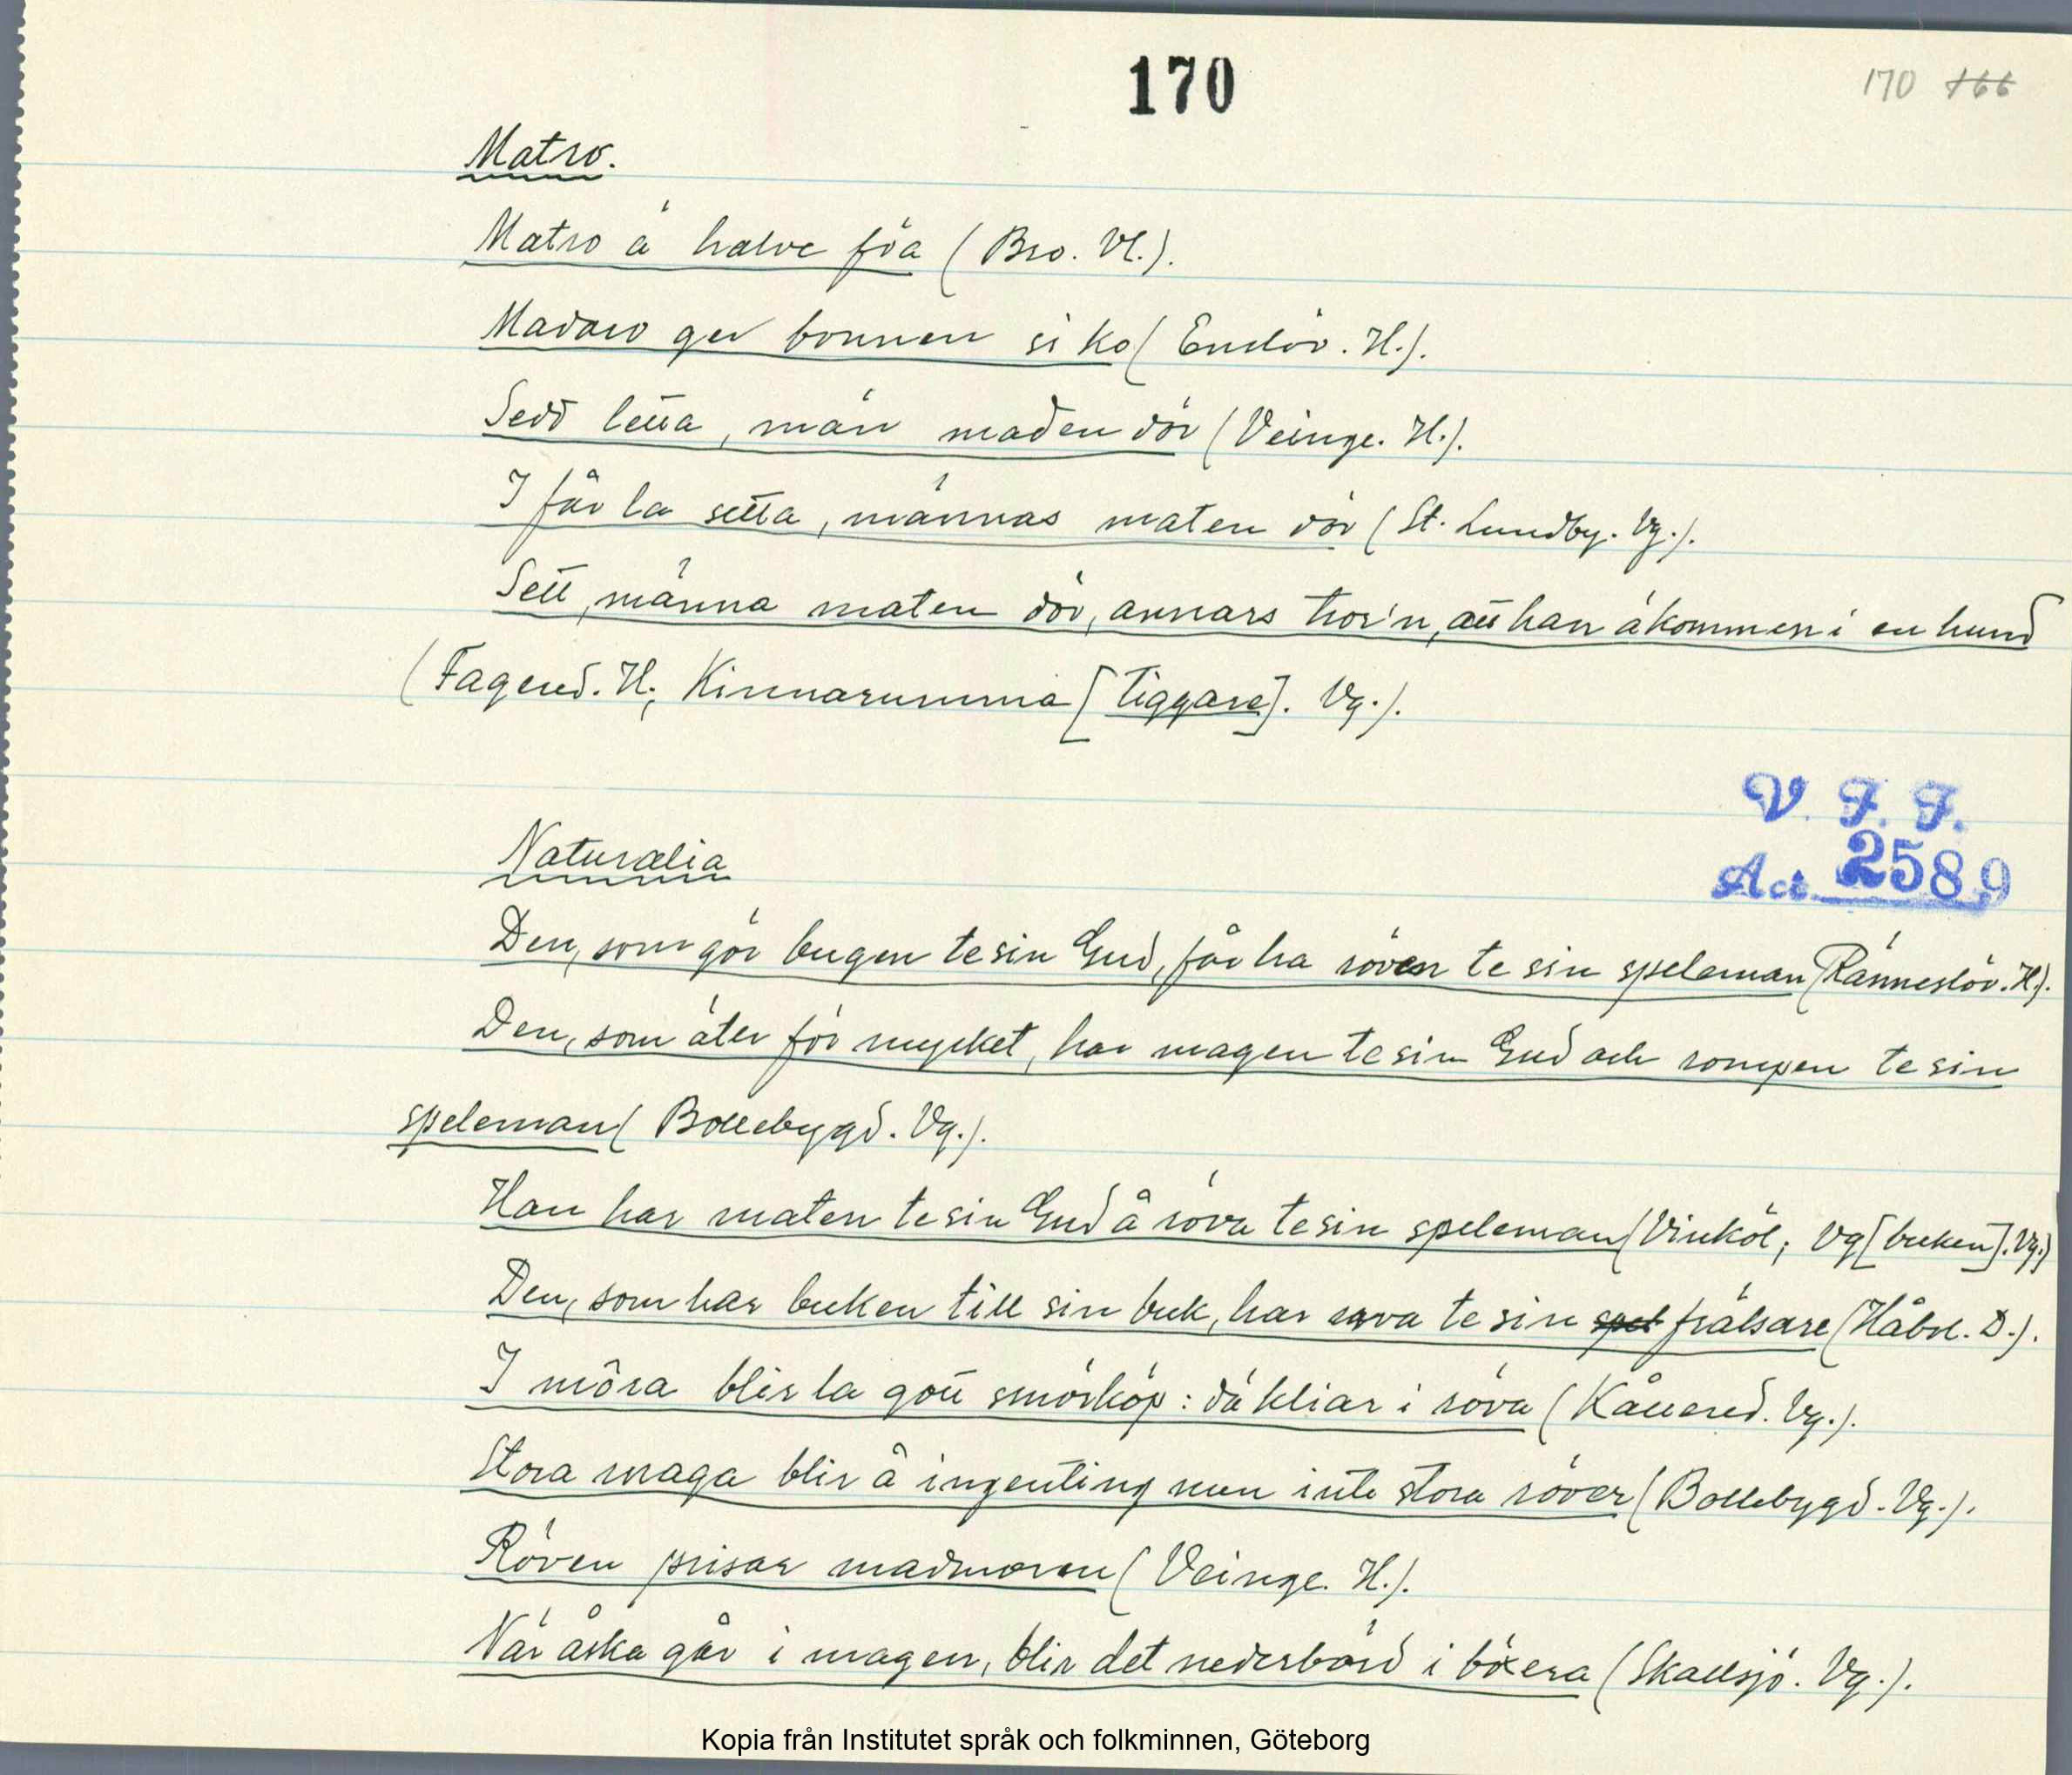 170
170 166
Matro.
Matro ä halve föa (Bro. Vl.).
Madaro ger bonnen si ko (Enslöv. H.).
Sedd letta, män maden dör (Veinge. H.).
I får la setta, männas maten dör (St. Lundby. Vg.).
Sett, männa maten dör, annars tror'n, att han ä kommen i en hund
(Fagered. H; Kinnarumma [tiggare]. Vg.).
V. F. F.
Act. 2589
Naturalia
Den, som gör bugen te sin Gud, får ha röven te sin speleman (Ränneslöv. H.).
Den, som äter för mycket, har magen te sin Gud och rompen te sin
speleman (Bollebygd. Vg.).
Han har maten te sin Gud å röva te sin speleman (Vinköl; Vg [buken]. Vg.)
Den, som har buken till sin buk, har röva te sin spel frälsare (Håbol. D.).
I môra blir la gott smörköp: dä kliar i röva (Kållered. Vg.).
Stora maga blir å ingenting men inte stora röver (Bollebygd. Vg.).
Röven prisar madmoren (Veinge. H.).
När åska går i magen, blir det nederbörd i böxera (Skallsjö. Vg.).
Kopia från Institutet språk och folkminnen, Göteborg